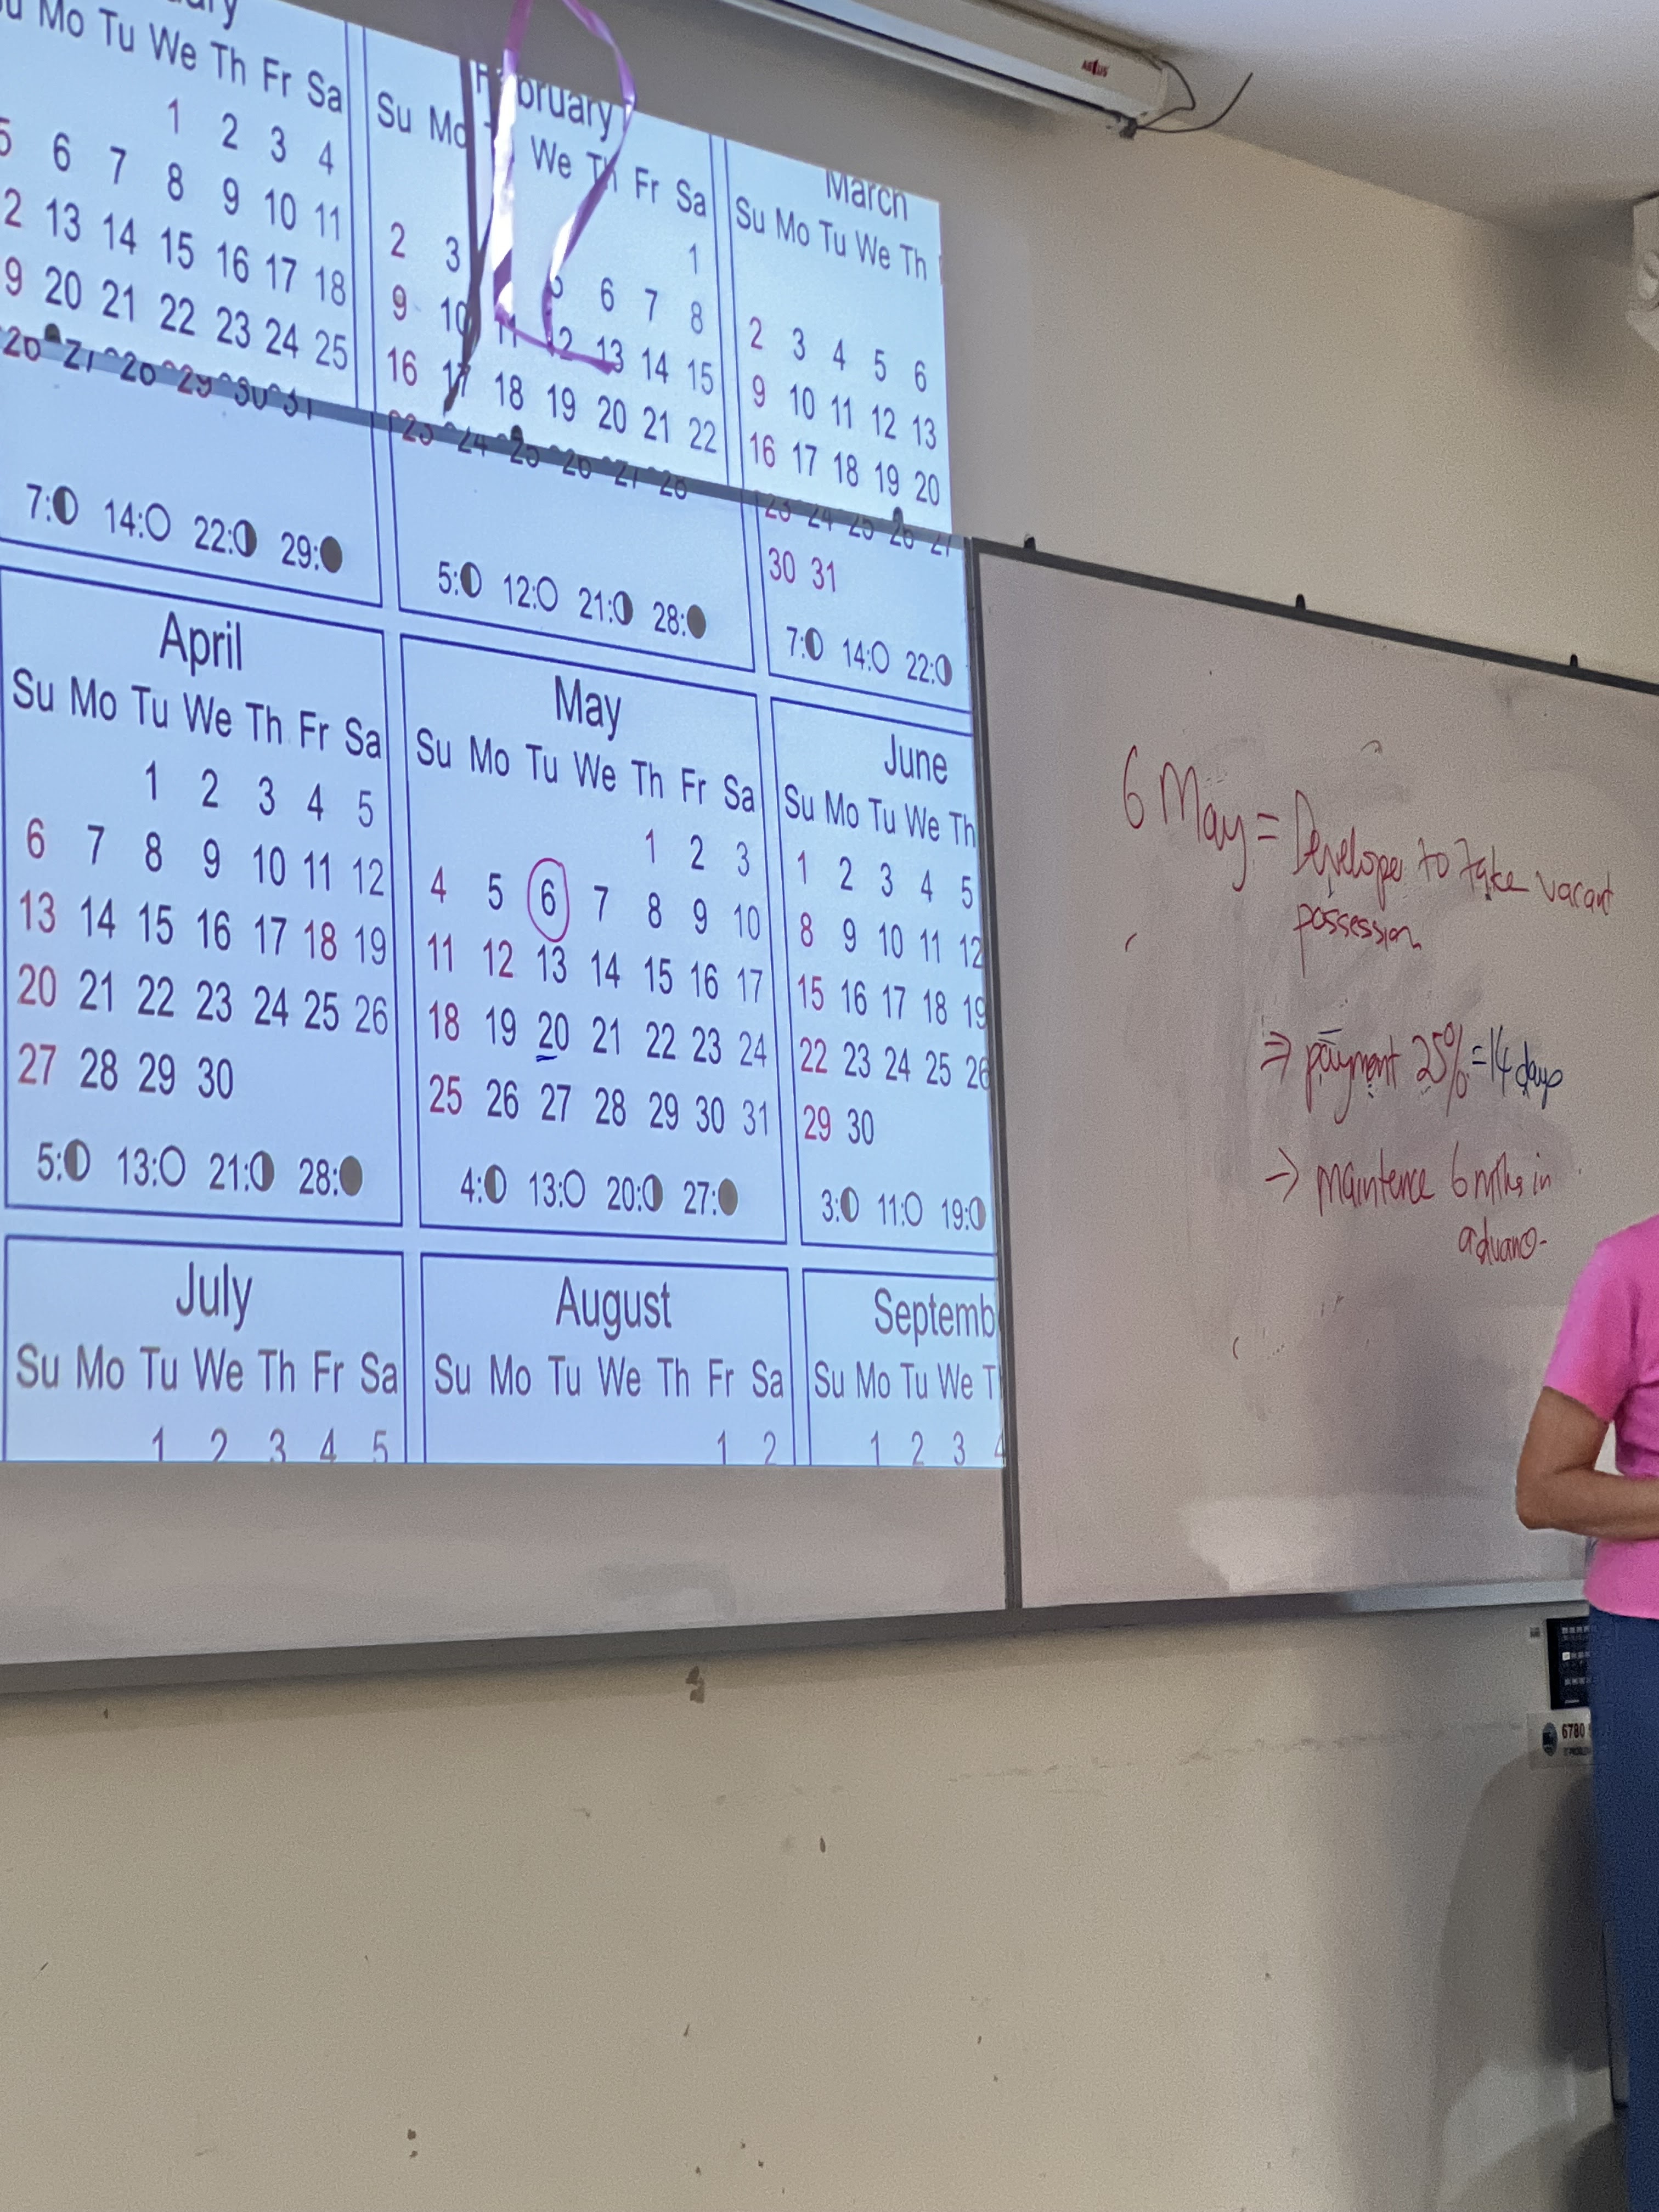 Mo Tu We Th Fr Sa
1 2 3 4
5 6 7 8 9 10 11
2 13 14 15 16 17 18
9 20 21 22 23 24 25
29 30 31
7: 14: 22: 29:
bruary
Su Mo We Th Fr Sa
1
2 3 6 7 8
9 10 11 12 13 14 15
16 17 18 19 20 21 22
23 24 25 26 27 28
5: 12: 21: 28:
March
Su Mo Tu We Th
2 3 4 5 6
9 10 11 12 13
16 17 18 19 20
23 24 25 26 27
30 31
7: 14: 22:
April
Su Mo Tu We Th Fr Sa
1 2 3 4 5
6 7 8 9 10 11 12
13 14 15 16 17 18 19
20 21 22 23 24 25 26
27 28 29 30
5: 13: 21: 28:
May
Su Mo Tu We Th Fr Sa
1 2 3
4 5 6 7 8 9 10
11 12 13 14 15 16 17
18 19 20 21 22 23 24
25 26 27 28 29 30 31
4: 13: 20: 27:
June
Su Mo Tu We Th
1 2 3 4 5
8 9 10 11 12
15 16 17 18 19
22 23 24 25 26
29 30
3: 11: 19:
July
Su Mo Tu We Th Fr Sa
1 2 3 4 5
August
Su Mo Tu We Th Fr Sa
1 2
Septemb
Su Mo Tu We T
1 2 3 4
6 May = Developer to take vacant
possession
⇒ payment 25% = 14 days
→ maintence 6 mths in
advanc-
6780